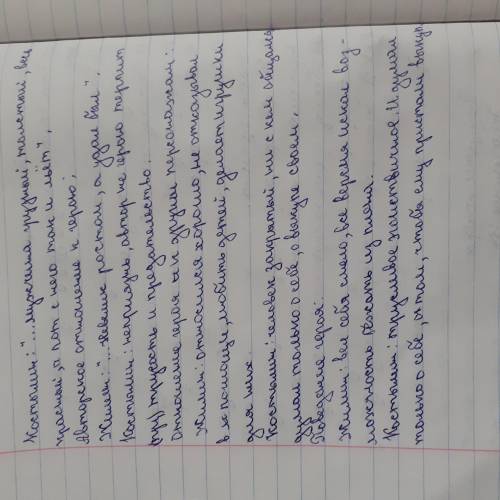 Костылин: "...мужчина грузный, толстый, весь
красный, а пот с него так и льёт",
Авторское отношение к герою:
Жилин: "...невелик ростом, а удал был".
Костылин: неприязнь, автор не герою терпит
трусость и предательство.
Отношение героя к другим персонажам:
Жилин: относился хорошо, не отказывал
в помощи, любить детей, делает игрушки
для них.
Костылин: человек закрытый, ни с кем общался
думал только о себе, о выкупе своём.
Поведение героя:
Жилин: вёл себя смело, все время искал воз-
можность бежать из плена.
Костылин: трусливое, эгоистичное. И думал
только о себе, о том, чтобы ему прислали выкуп